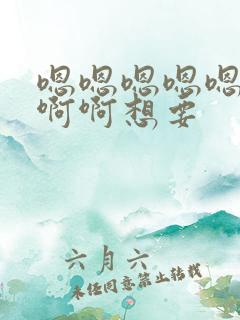 嗯嗯嗯嗯嗯
啊啊想要
六月六
未经同意禁止转载